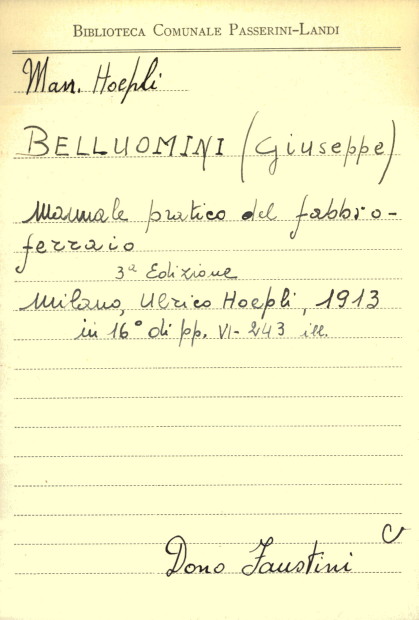 BIBLIOTECA COMUNALE PASSERINI-LANDI
Man. Hoepli
BELLUOMINI (Giuseppe)
Manuale pratico del fabbro-
ferraio
3ª Edizione
Milano, Ulrico Hoepli, 1913
in 16° di pp. VI-243 ill.
C
Dono Faustini